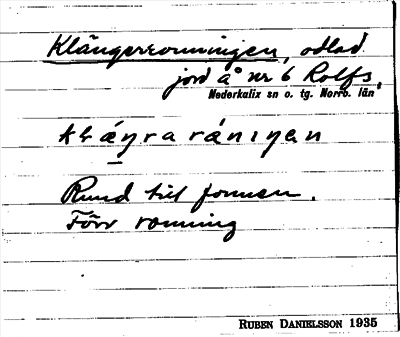 Klängerronningen, odlad
jord å nr 6 Rolfs,
Nederkalix sn o. tg. Norrb. län
Rund till formen.
Förr ronning
RUBEN DANIELSSON 1935